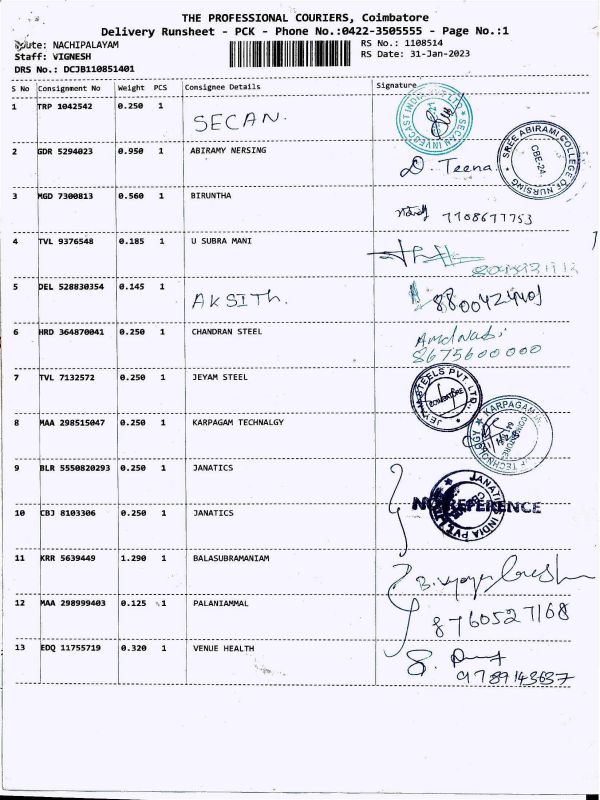 THE PROFESSIONAL COURIERS, Coimbatore
Delivery Runsheet - PCK - Phone No.:0422-3505555 - Page No.:1
Route: NACHIPALAYAM
RS No.: 1108514
Staff: VIGNESH
RS Date: 31-Jan-2023
DRS No.: DCJB110851401
S No Consignment No Weight PCS Consignee Details Signature
1 TRP 1042542 0.250 1 SECAN.
2 GDR 5294023 0.950 1 ABIRAMY NERSING
SREE ABIRAMI COLLEGE OF NURSING
CBE-24.
D. Teena
3 MGD 7300813 0.560 1 BIRUNTHA
7708677753
4 TVL 9376548 0.185 1 U SUBRA MANI
5 DEL 528830354 0.145 1 AKSITH.
6 HRD 364870041 0.250 1 CHANDRAN STEEL
8675600000
7 TVL 7132572 0.250 1 JEYAM STEEL
JEYAM STEELS PVT. LTD.
COIMBATORE
8 MAA 298515047 0.250 1 KARPAGAM TECHNALGY
KARPAGAM
OF TECHNOLOGY
9 BLR 5550820293 0.250 1 JANATICS
JANATICS INDIA PVT. LTD
10 CBJ 8103306 0.250 1 JANATICS
NO REFERENCE
11 KRR 5639449 1.290 1 BALASUBRAMANIAM
12 MAA 298999403 0.125 1 PALANIAMMAL
8760527168
13 EDQ 11755719 0.320 1 VENUE HEALTH
9789143637